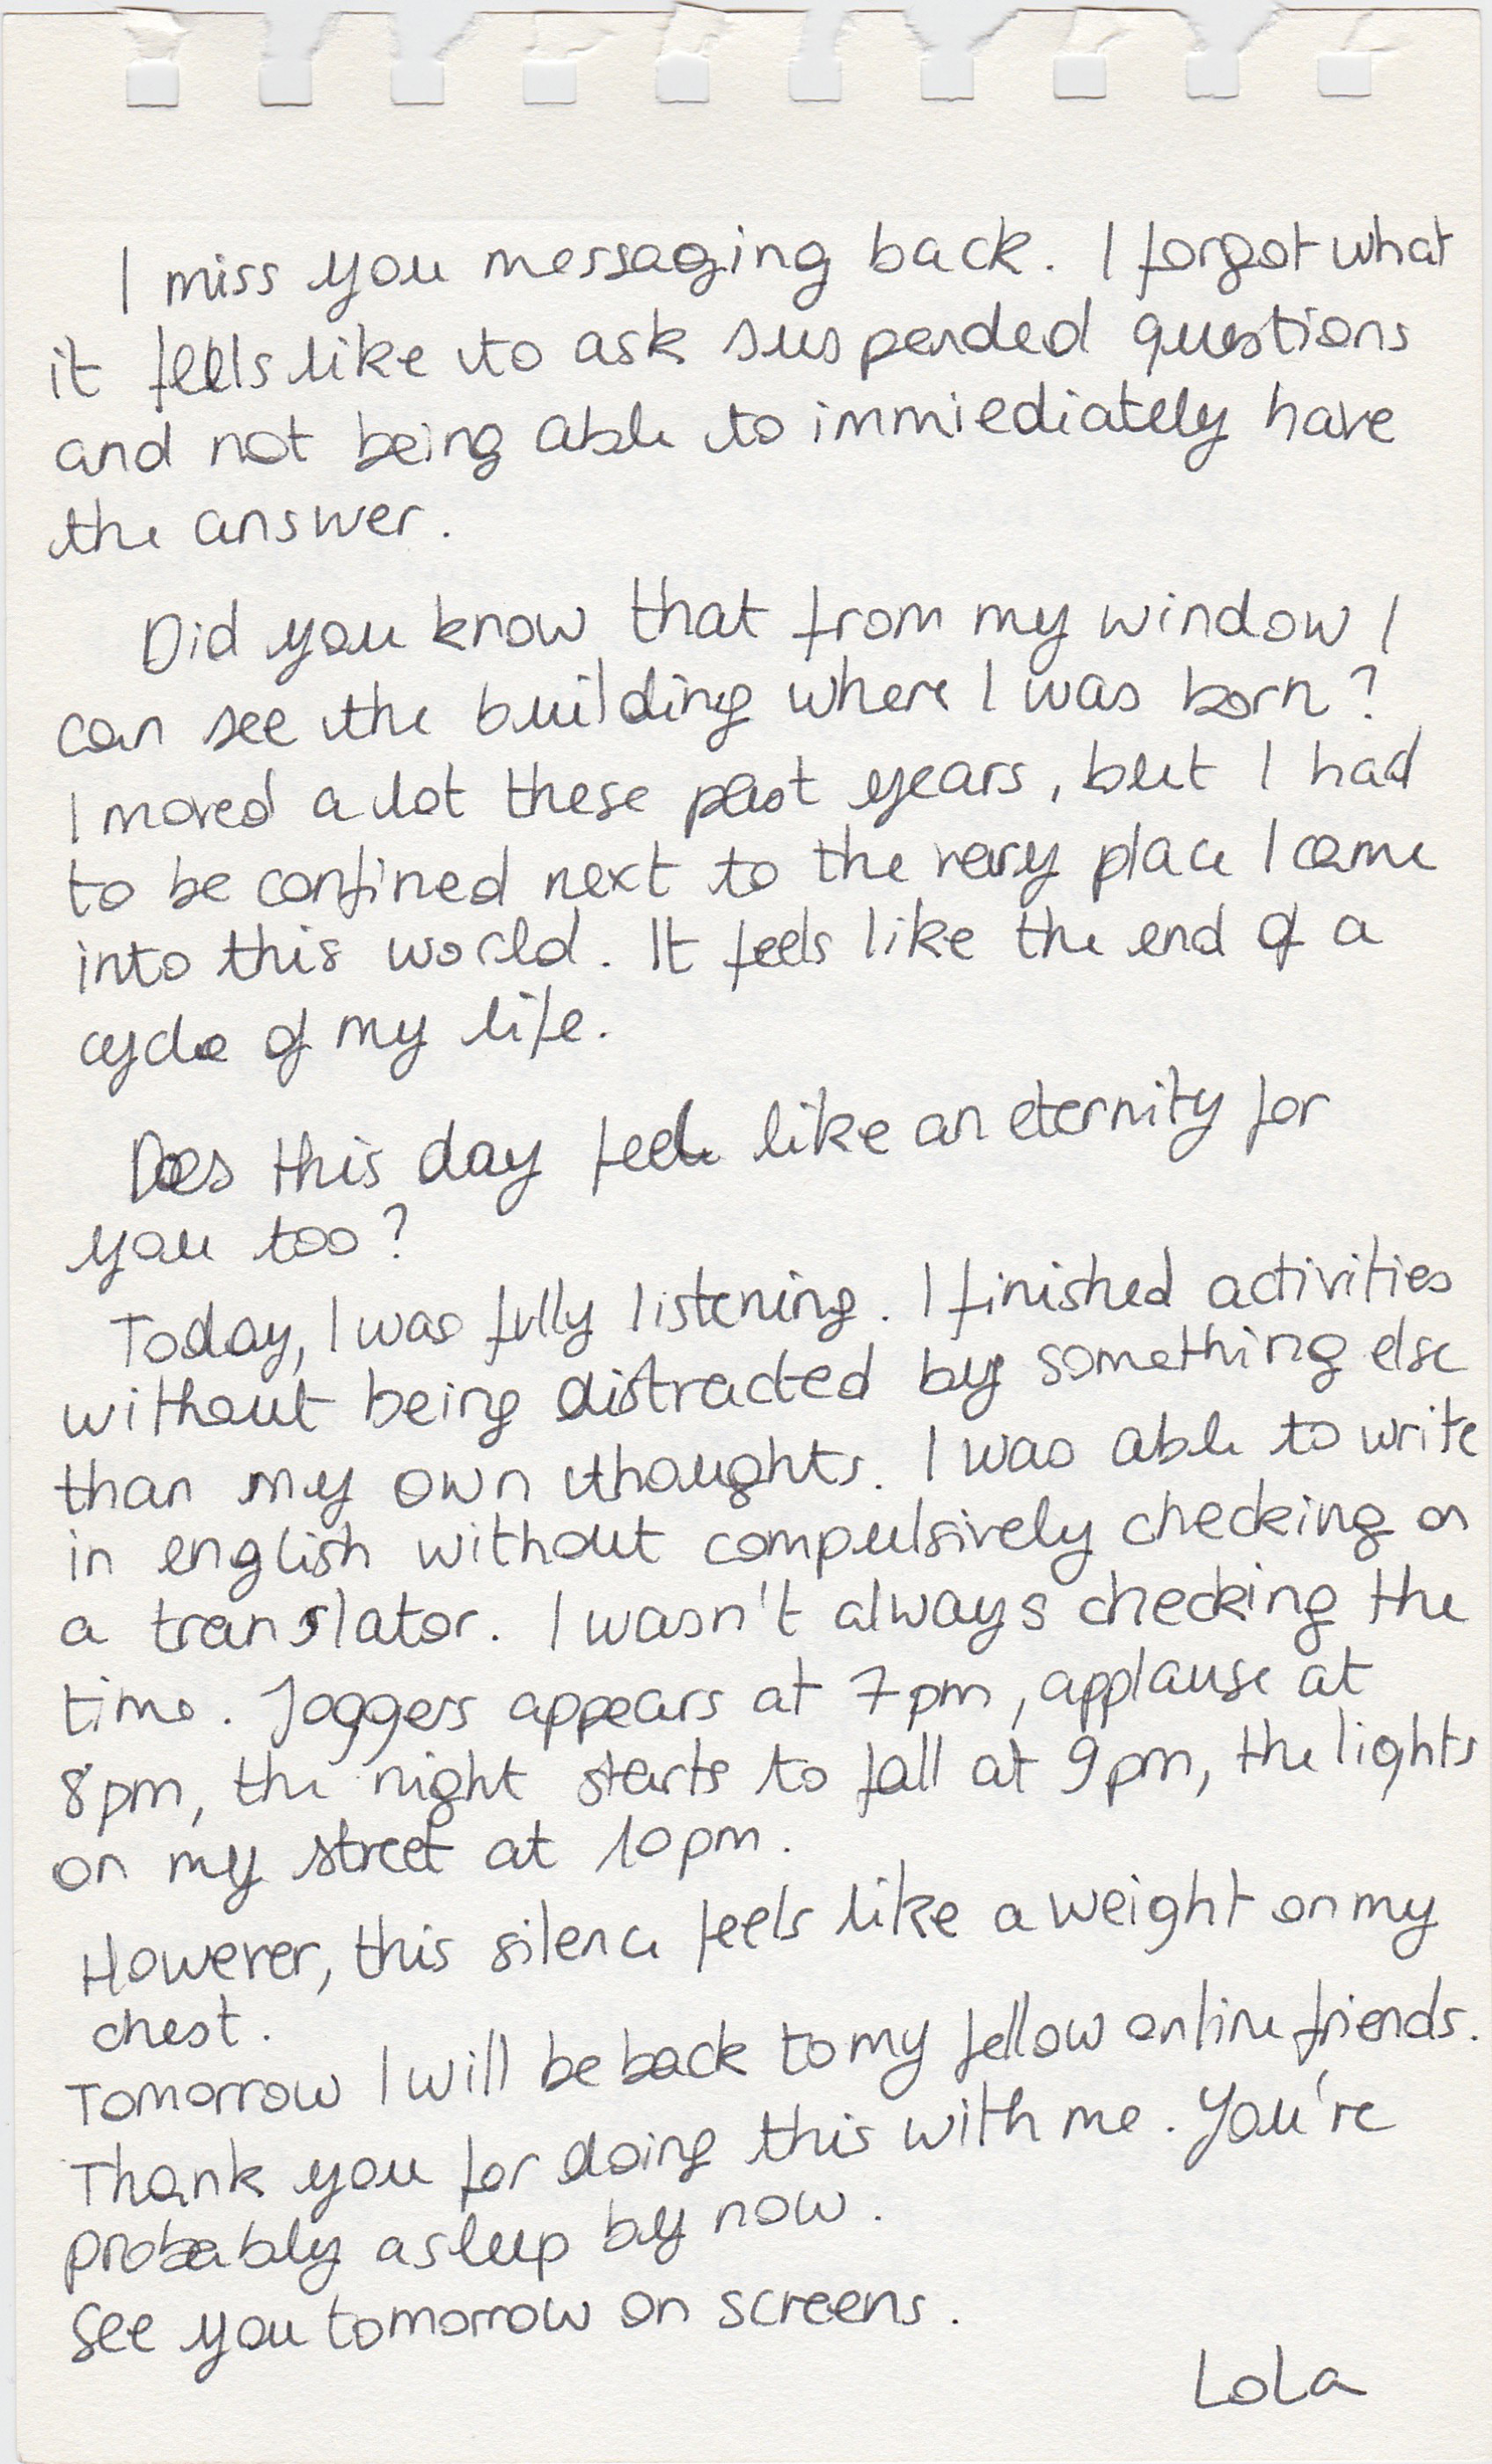 I miss you messaging back. I forgot what
it feels like to ask suspended questions
and not being able to immiediately have
the answer.
Did you know that from my window I
can see the building where I was born?
I moved a lot these past years, but I had
to be confined next to the very place I came
into this world. It feels like the end of a
cycle of my life.
Does this day feel like an eternity for
you too?
Today, I was fully listening. I finished activities
without being distracted by something else
than my own thoughts. I was able to write
in english without compulsively checking on
a translator. I wasn't always checking the
time. Joggers appears at 7pm, applause at
8pm, the night starts to fall at 9pm, the lights
on my street at 10pm.
However, this silence feels like a weight on my
chest.
Tomorrow I will be back to my fellow online friends.
Thank you for doing this with me. You're
probably asleep by now.
See you tomorrow on screens.
Lola